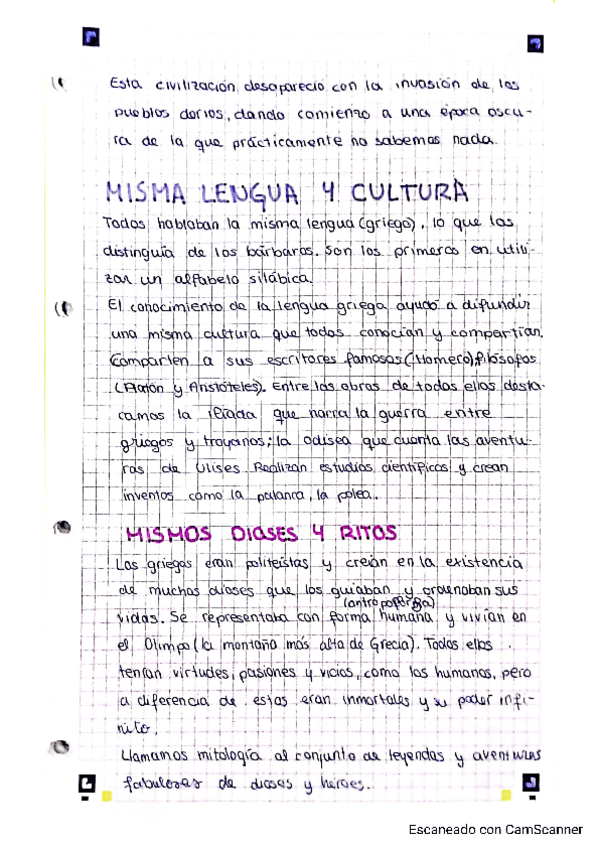 Esta civilización desapareció con la invasión de los
pueblos dorios, dando comienzo a una época oscu-
ra de la que prácticamente no sabemos nada.
MISMA LENGUA Y CULTURA
Todos hablaban la misma lengua (griego), lo que los
distinguía de los bárbaros. Son los primeros en utili-
zar un alfabeto silábica.
El conocimiento de la lengua griega ayudó a difundir
una misma cultura que todos conocían y compartían.
Comparten a sus escritores famosos (Homero), filósofos
(Platón y Aristóteles). Entre las obras de todos ellos desta-
camos la Ilíada que narra la guerra entre
griegos y troyanos; la Odisea que cuenta las aventu-
ras de Ulises. Realizan estudios científicos y crean
inventos como la palanca, la polea.
MISMOS DIOSES Y RITOS
Los griegos eran politeístas y creían en la existencia
de muchos dioses que los guiaban y ordenaban sus
vidas. Se representaba con forma humana y vivían en
el Olimpo (la montaña más alta de Grecia). Todos ellos
tenían virtudes, pasiones y vicios, como los humanos, pero
a diferencia de estos eran inmortales y su poder infi-
nito.
Llamamos mitología al conjunto de leyendas y aventuras
fabulosas de dioses y héroes.
Escaneado con CamScanner